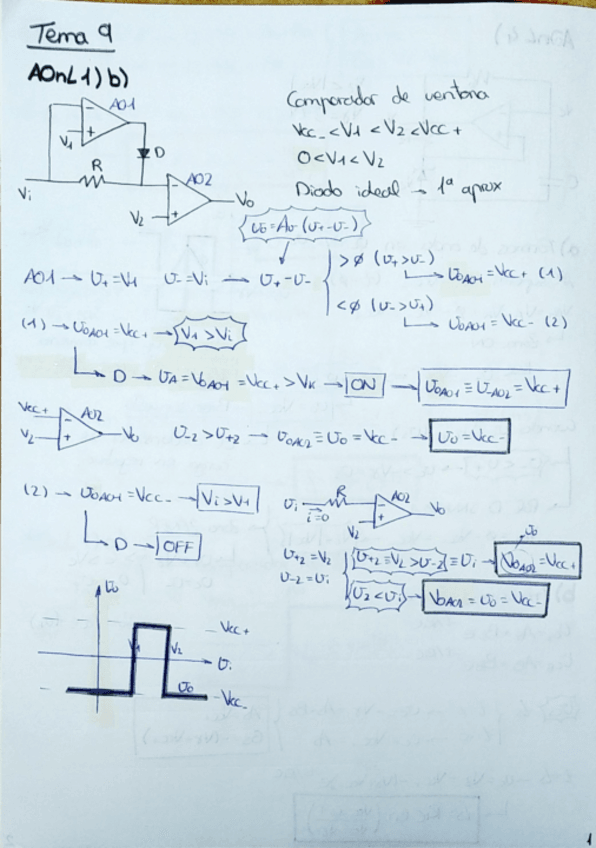 Tema 9
AOnL 1) b)
AO1
V1
D
R
Vi
AO2
V2
Vo
Comparador de ventana
Vcc- < V1 < V2 < Vcc+
0 < V1 < V2
Diodo ideal → 1ª aprox
Uo = Av (U+ - U-)
AO1 → U+ = V1 U- = Vi → U+ - U-
> Ø (U+ > U-)
UoAO1 = Vcc+ (1)
< Ø (U- > U+)
UoAO1 = Vcc- (2)
(1) → UoAO1 = Vcc+ → V1 > Vi
D → UA = VoAO1 = Vcc+ > VK → ON → UoAO1 ≡ U-AO2 = Vcc+
Vcc+
V2
AO2
Vo
U-2 > U+2 → UoAO2 ≡ Uo = Vcc- → Uo = Vcc-
(2) → UoAO1 = Vcc- → Vi > V1
D → OFF
Ui
R
i=0
AO2
V2
Vo
U+2 = V2
U-2 = Ui
U+2 ≡ V2 > U-2 ≡ Ui → VoAO2 = Vcc+
Uo
U2 < Ui → VoAO2 = Uo = Vcc-
Uo
Vcc+
V1
V2
Ui
Uo
Vcc-
1